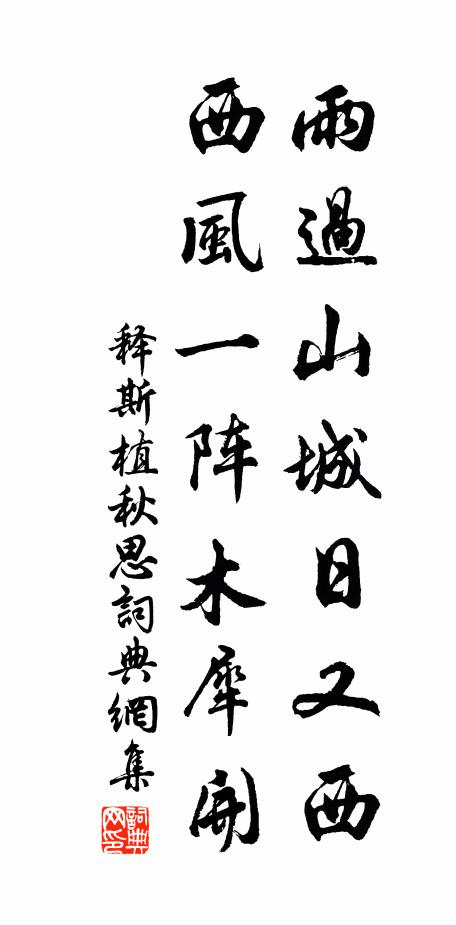 雨過山城日又西
西風一阵木犀開
释斯植秋思詞典網集
詞典网印